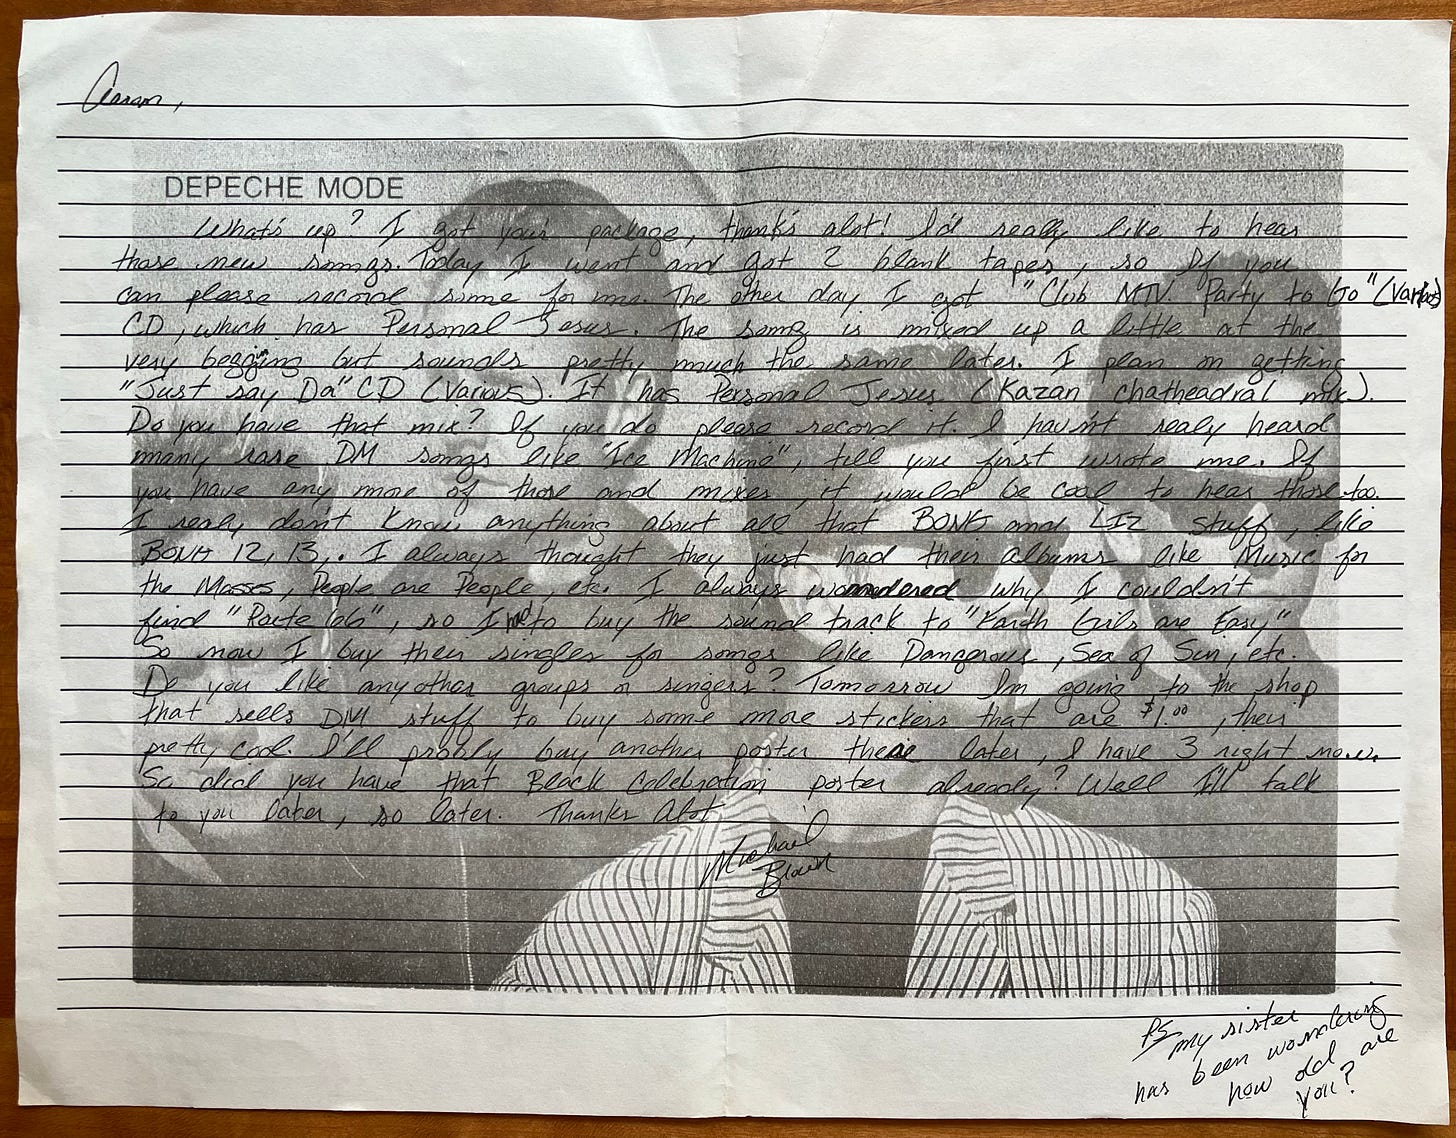 Aaron,
DEPECHE MODE
What's up? I got your package, thank's alot! I'd really like to hear
those new songs. Today I went and got 2 blank tapes, so If you
can please record some for me. The other day I got "Club MTV Party to Go" (Various)
CD, which has Personal Jesus. The song is mixed up a little at the
very begging but sounds pretty much the same later. I plan on getting
"Just say Da" CD (Various). It has Personal Jesus (Kazan chatheadral mix).
Do you have that mix? If you do please record it. I hav'nt realy heard
many rare DM songs like "Ice Machine", till you first wrote me. If
you have any more of those and mixes, it would be cool to hear those too.
I realy don't know anything about all that BONG and LIZ stuff, like
BONG 12, 13,. I always thought they just had their albums like Music for
the Masses, People are People, etc. I always wondered why I couldn't
find "Route 66", so I had to buy the sound track to "Earth Girls are Easy"
So now I buy their singles for songs like Dangerous, Sea of Sin, etc.
Do you like any other groups or singers? Tomorrow Im going to the shop
that sells DM stuff to buy some more stickers that are $1.00, their
pretty cool. I'll probly buy another poster there later, I have 3 right now.
So did you have that Black Celebration poster already? Well I'll talk
to you later, so later. Thanks Alot
Michael
Brown
PS my sister
has been wondering
how old are
you?